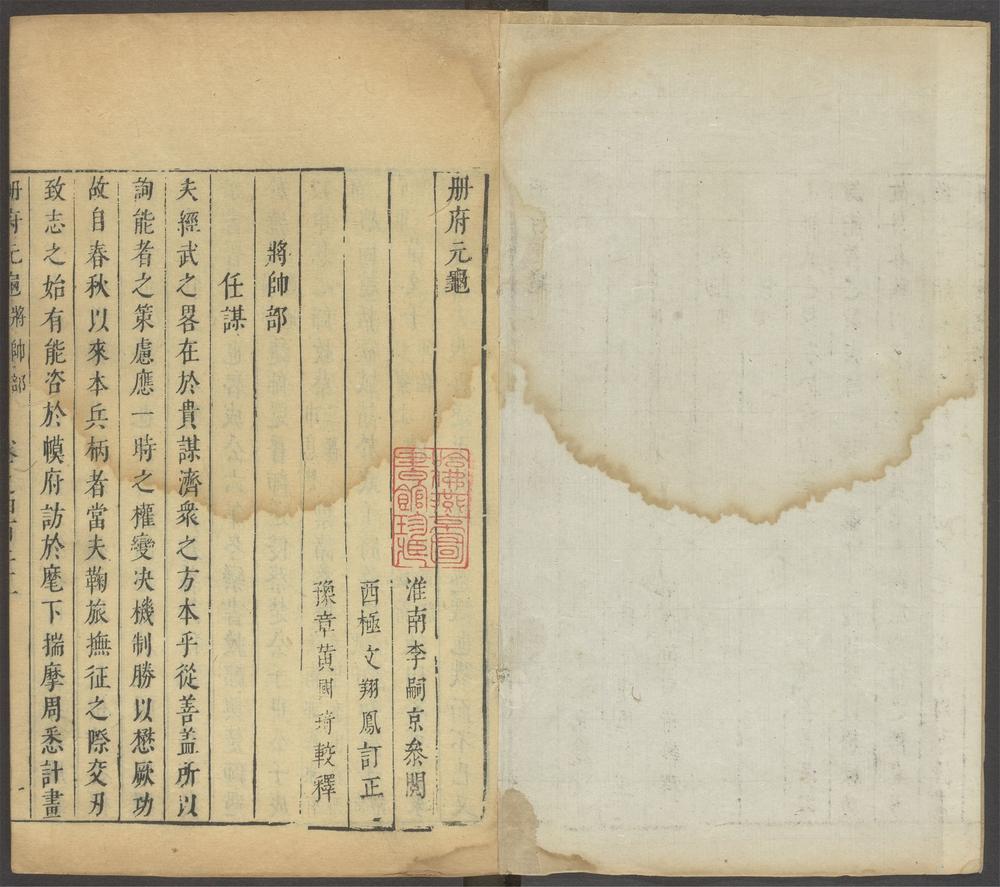 册府元龜
淮南李嗣京叅閱
西極文翔鳳訂正
豫章黃國琦較釋
將帥部
任謀
夫經武之畧在於貴謀濟衆之方本乎從善蓋所以
詢能者之策慮應一時之權變决機制勝以懋厥功
故自春秋以來本兵柄者當夫鞠旅撫征之際交刃
致志之始有能咨於幙府訪於麾下揣摩周悉計畫
册府元龜 將帥部
哈佛燕京圖書館珍藏